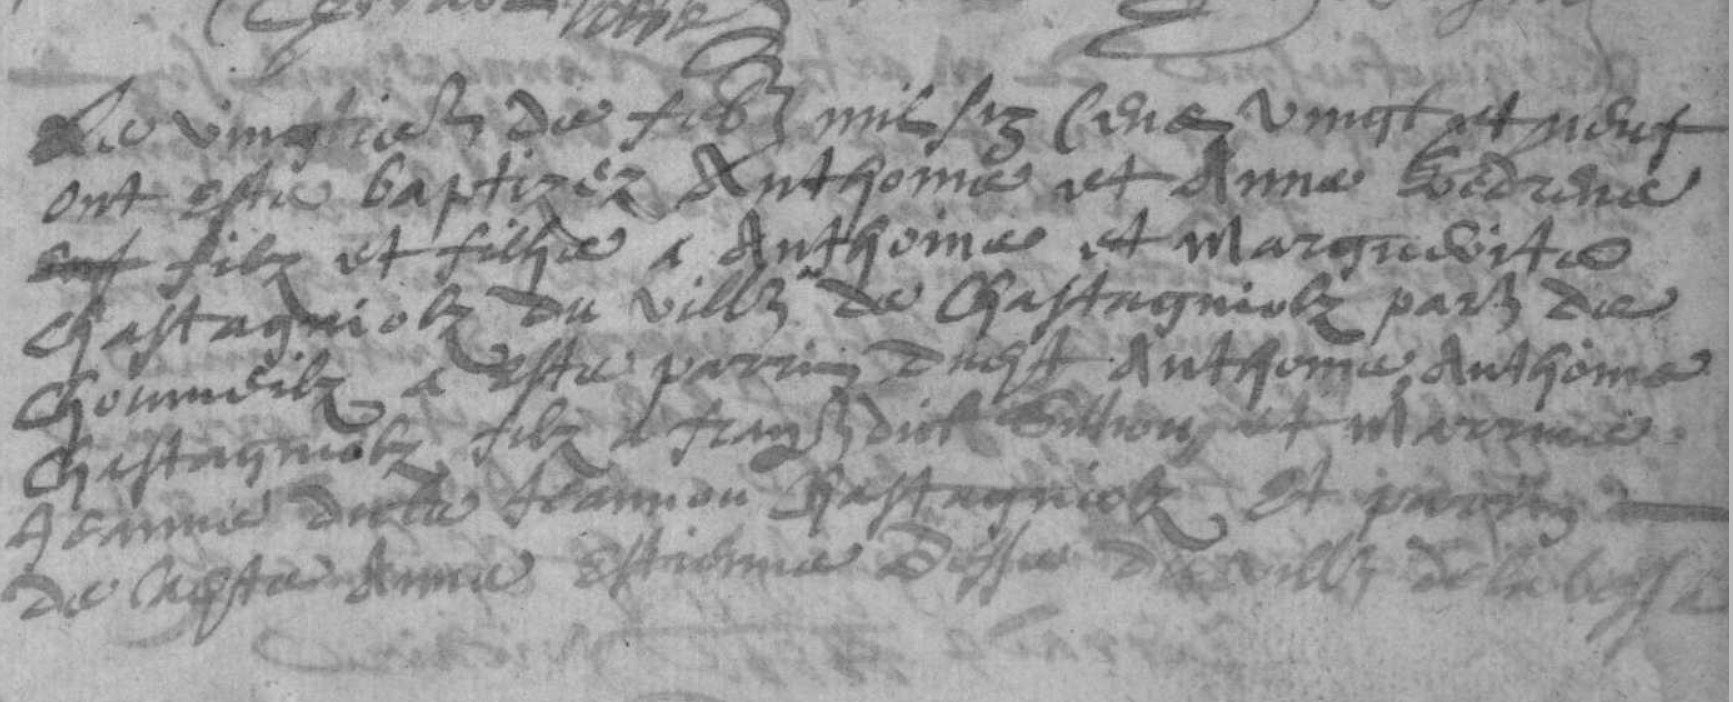 Le vingties de febr mil six cens vingt et neuf
ont este baptizez Anthoine et Anne Vedrine
filz et filhe a Anthoine et Marguerite
Chastagniolz du villa de Chastagniolz parr de
Choumeilz a este parrin dudit Anthoine Anthoine
Chastagniolz filz a dict et marrine
Jeanne dicte Jeannou Chastagniolz Et parrin
de Ceste Anne Estienne du villa de la